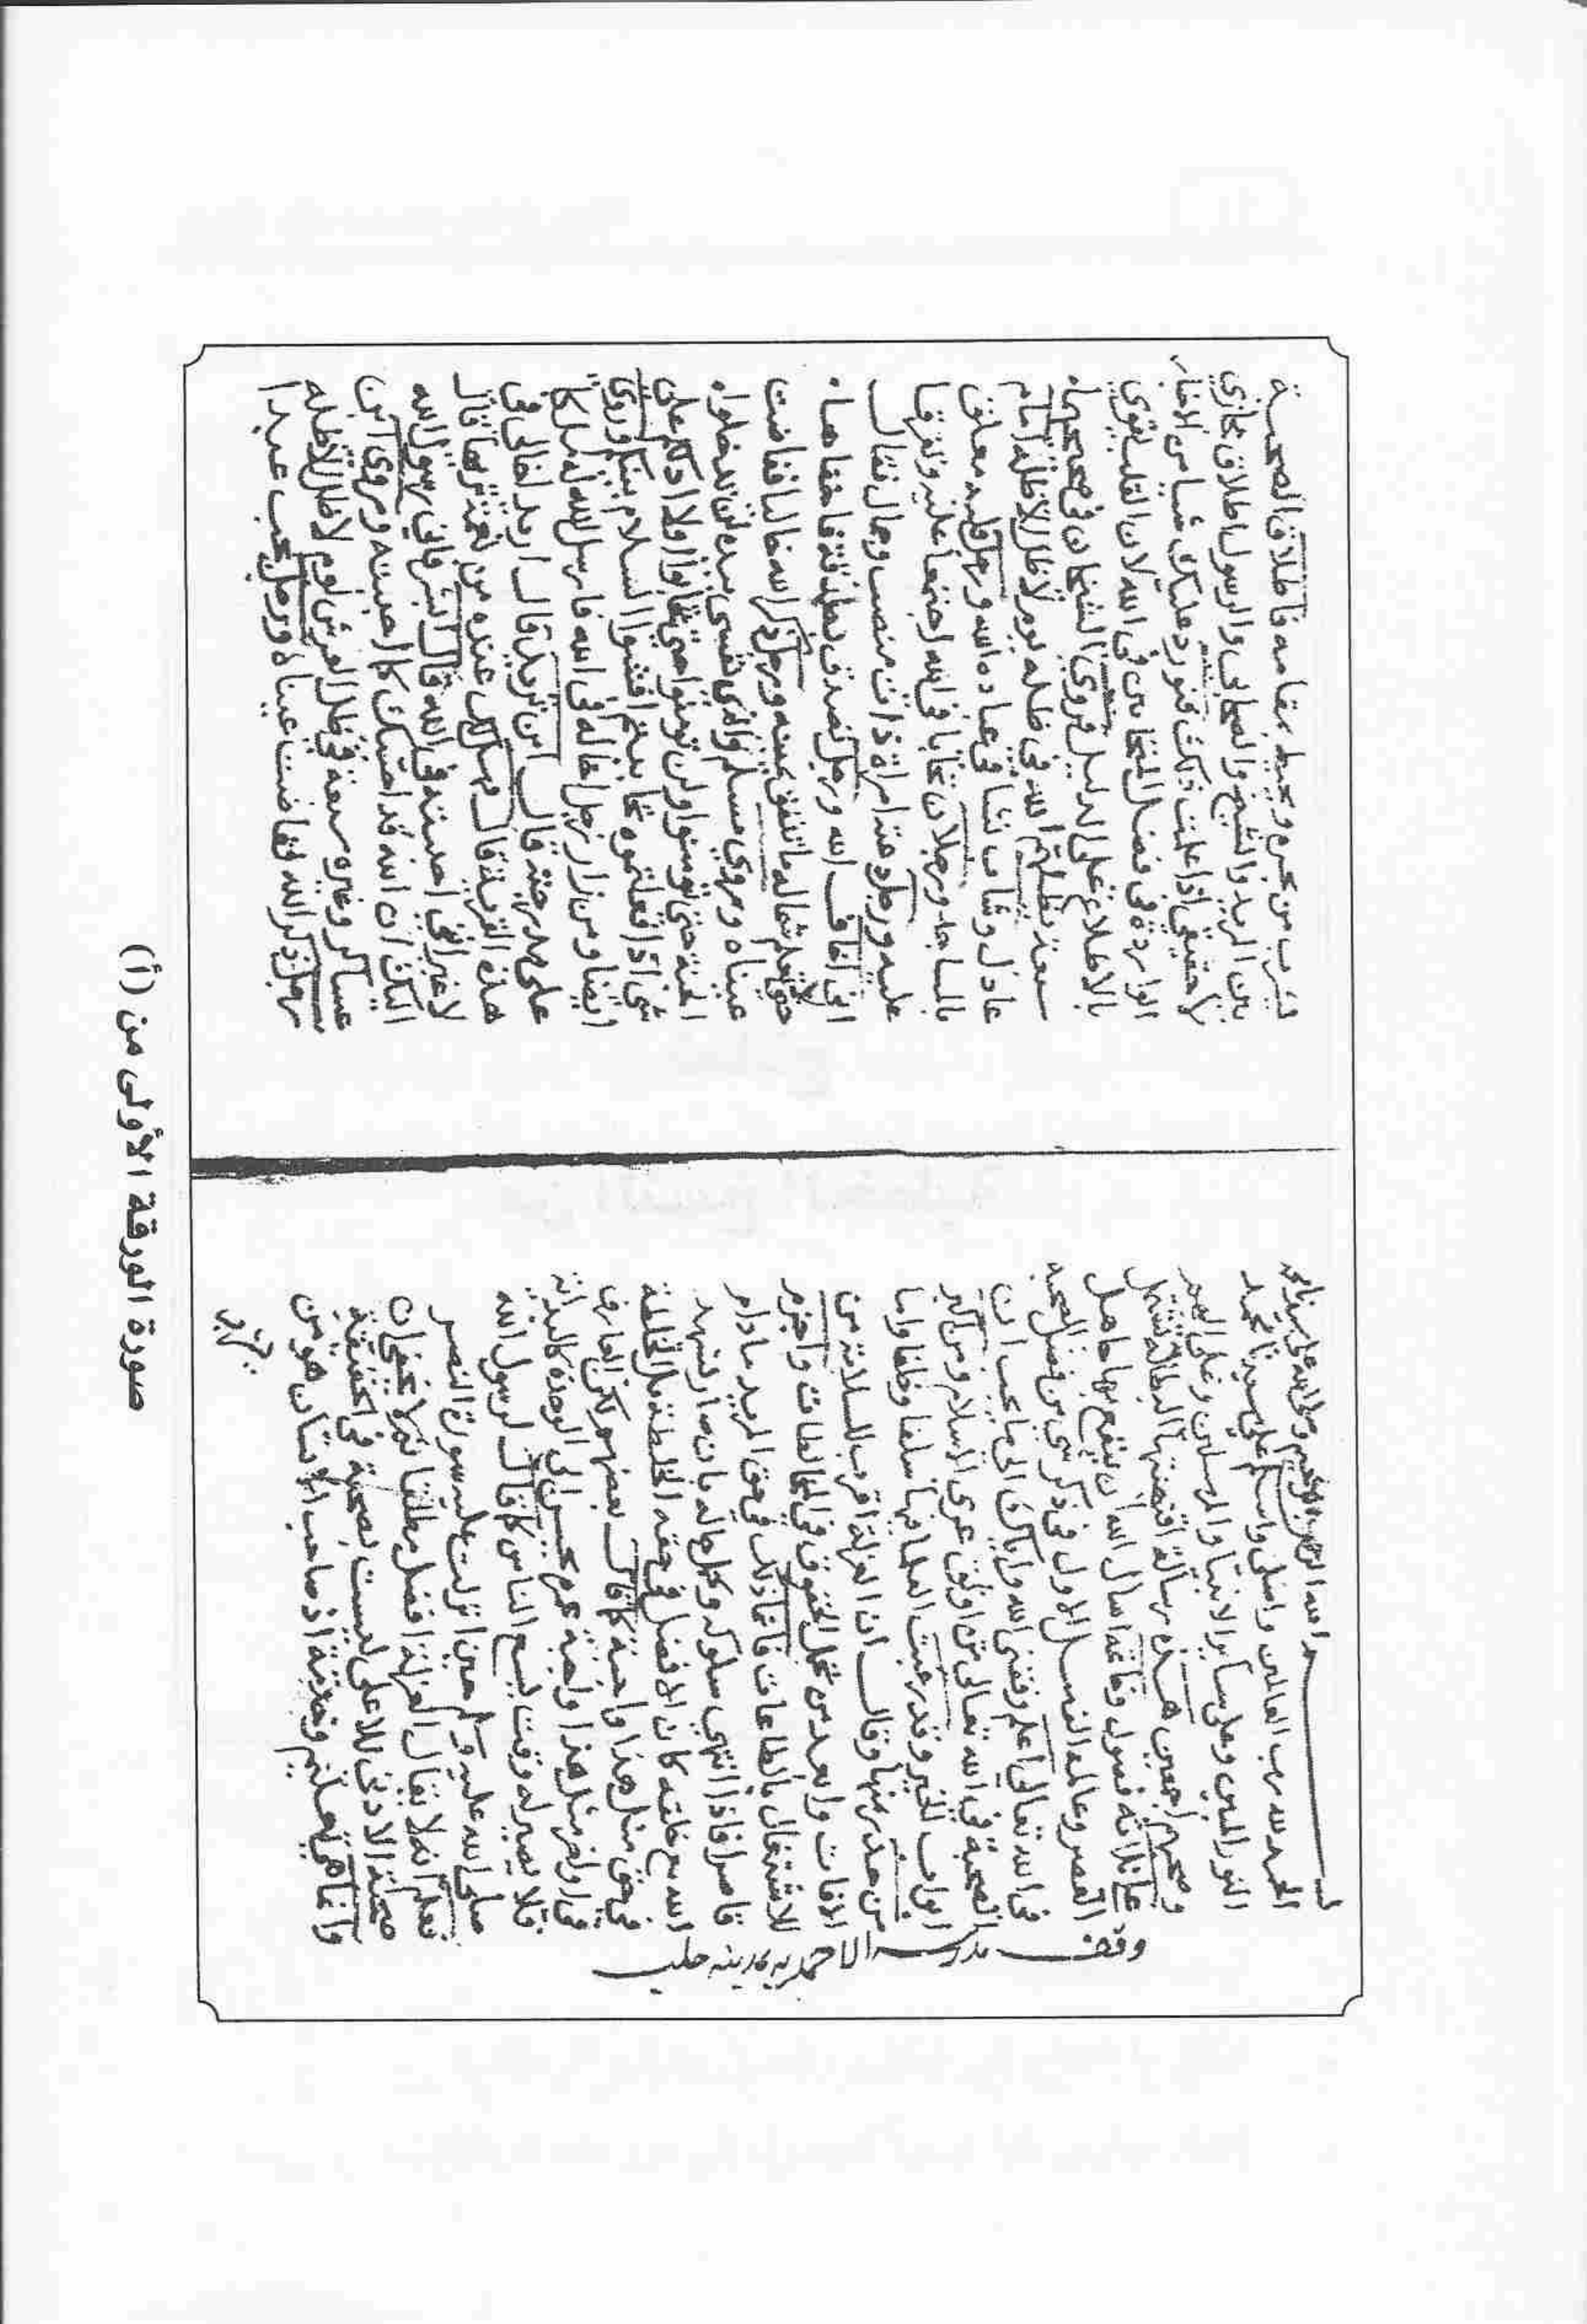 بسم الله الرحمن الرحيم وصلى الله على سيدنا محمد
الحمد لله رب العالمين واصلى واسلم على سيدنا محمد
النور المبين وعلى سائر الانبيا والمرسلين وعلى الهم
وصحبهم اجمعين هذه رسالة اقتضتها البطالة تشتمل
على ثلاثة فصول وخاتمة اسال الله ان ينفع بها جاهل
العصر وعالمه الفصل الاول في ذكر شي من فضل الصحبة
في الله تعالى اعلم وفقنى الله واياك الى ما يحب ان
الصحبة في الله تعالى من اوثق عرى الاسلام ومن اكبر
ابواب الخير وقد رغبت العلما فيها سلفا وخلفا واما
من حذر منها وقال ان العزلة اقرب للسلامة من
الافات وابعد من تحمل الحقوق في المخالطات
للاشتغال بالطاعات فانما ذلك في حق المريد مادام
قاصرا فاذا انتهى سلوكه وكمل حاله بان صار يشهد
الله مع خلقه كان الافضل في حقه الخلطة بل الخلطة
في حق مثل هذا واجبة كما قال بعضهم لكن العارف
في اواخر الى الوحدة كالبداية
فلا يصير له وقت يسع الناس كما قال لرسول الله
صلى الله عليه وسلم حين انزلت عليه سورة النصر
فعلم انه لا يقال العزلة افضل مطلقا ثم لا يخفى ان
صحبة الادنى للاعلى ليست بصحبة في الحقيقة
وانما هي تعليم وخدمة اذ صاحب الانسان هو من
يشرب
وقف مدرسة الاحمديه بمدينه حلب
يشرب من بحره ويحيط بمقامه فاطلاق الصحبة
بين المريد والشيخ والصحابى والرسول اطلاق مجازي
لا حقيقي اذا علمت ذلك فنورد عليك شيا من الاخبار
الواردة في فضل المتحابين في الله لان القلب يقوي
بالاطلاع على الدليل فروي الشيخان في صحيحهما
سبعة يظلهم الله في ظله يوم لا ظل الا ظله امام
عادل وشاب نشا في عبادة الله ورجل قلبه معلق
بالمساجد ورجلان تحابا في الله اجتمعا عليه وتفرقا
عليه ورجل دعته امراة ذات منصب وجمال فقال
انى اخاف الله ورجل تصدق بصدقة فاخفاها
حتى لا تعلم شماله ما تنفق يمينه ورجل ذكر الله خاليا ففاضت
عيناه وروى مسلم والذي نفسى بيده لن تدخلوا
الجنة حتى تومنوا ولن تومنوا حتى تحابوا اولا ادلكم على
شي اذا فعلتموه تحاببتم افشوا السلام بينكم وروي
ايضا ومن زار رجل اخا له في الله فارسل الله له ملكا
على مدرجته قال اين تريد قال اريد اخا لى في
هذه القرية قال هل لك عنده من نعمة تربها قال
لا غير انى احببته في الله قال انى رسول الله
اليك ان الله قد احبك كما احببته وروى ابن
عساكر وغيره سبعة في ظل العرش يوم لا ظل الا ظله
رجل ذكر الله ففاضت عيناه ورجل يحب عبدا
صورة الورقة الأولى من (أ)